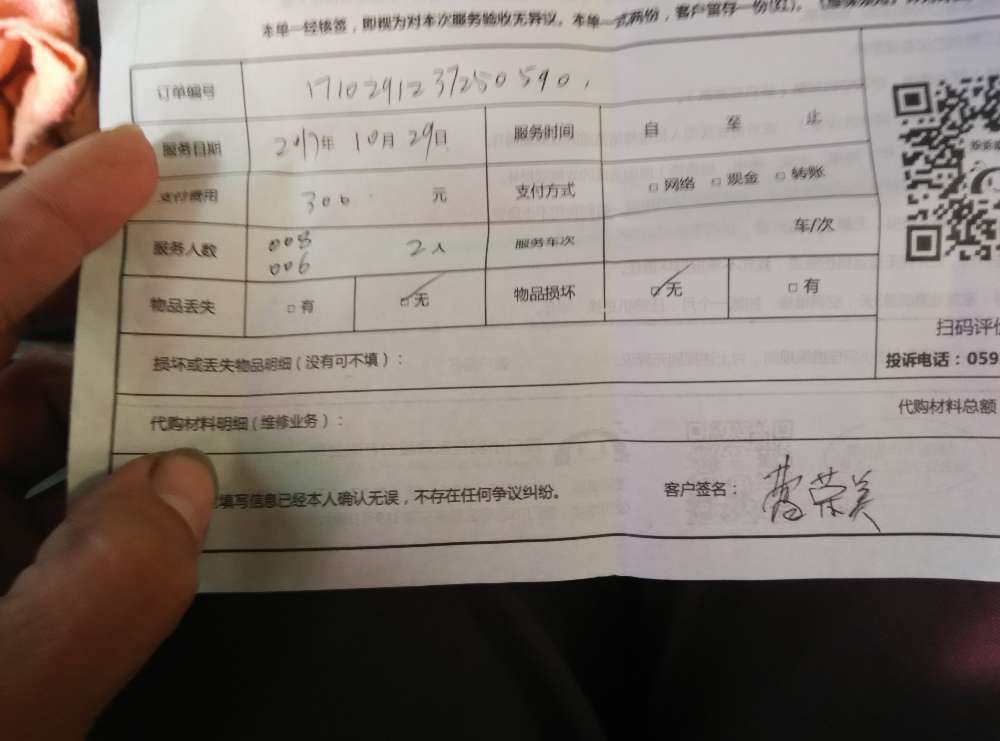 本单一经核签，即视为对本次服务验收无异议。本单一式两份，客户留存一份(红)。
订单编号 1710291237250590
服务日期 2017年 10月 29日 服务时间 自 至 止
支付费用 300 元 支付方式 □ 网络 □ 现金 □ 转账
服务人数 008 006 2人 服务车次 车/次
物品丢失 □ 有 □ 无 物品损坏 □ 无 □ 有
扫码评价
损坏或丢失物品明细（没有可不填）：
投诉电话：059
代购材料明细（维修业务）：
代购材料总额
填写信息已经本人确认无误，不存在任何争议纠纷。
客户签名： 荣美